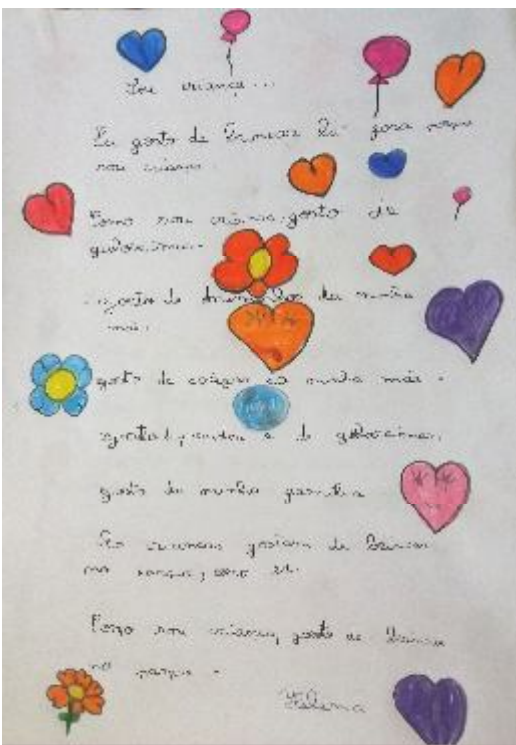 Sou criança...
Eu gosto de brincar lá fora porque
sou criança.
Como sou criança, gosto de
guloseimas.
gosto de da minha
mãe.
gosto da minha mãe.
e de guloseimas,
gosto da minha família
As crianças gostam de brincar
no parque, como eu.
Como sou criança, gosto de brincar
no parque.
Helena